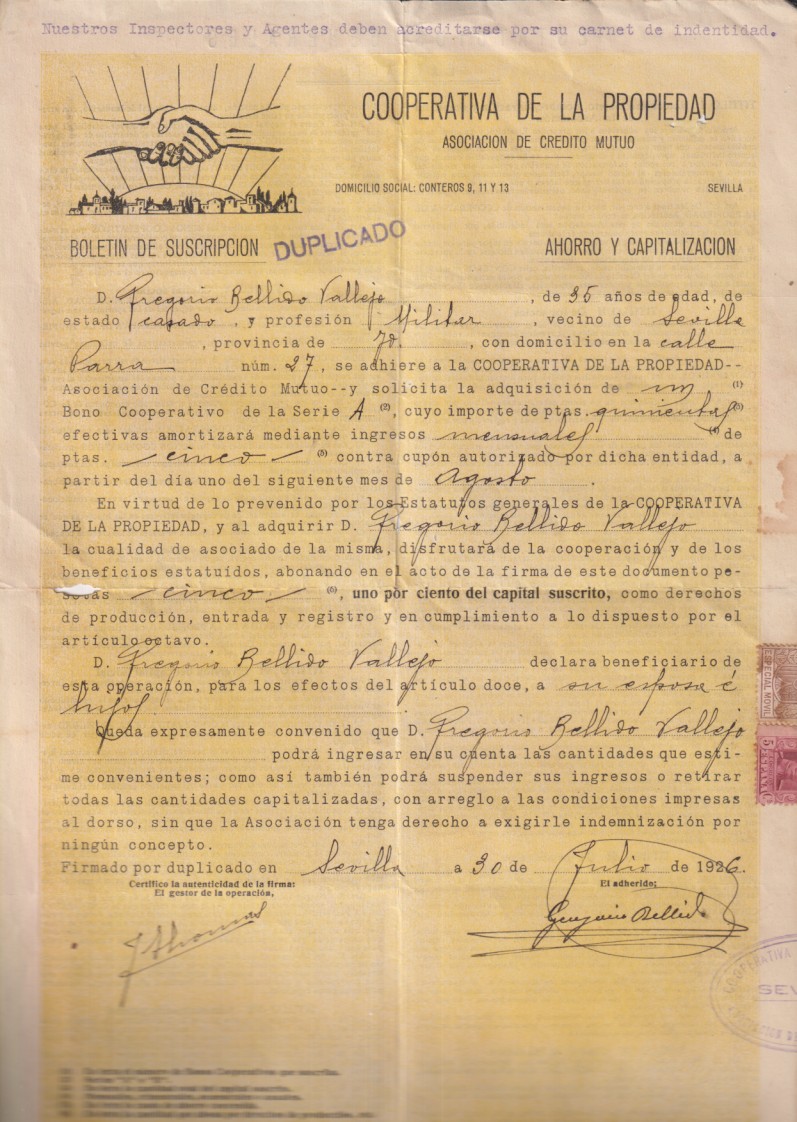 Nuestros Inspectores y Agentes deben acreditarse por su carnet de indentidad.
COOPERATIVA DE LA PROPIEDAD
ASOCIACION DE CREDITO MUTUO
DOMICILIO SOCIAL: CONTEROS 9, 11 Y 13 SEVILLA
BOLETIN DE SUSCRIPCION DUPLICADO AHORRO Y CAPITALIZACION
D. Gregorio Bellido Vallejo, de 35 años de edad, de
estado casado, y profesión Militar, vecino de Sevilla
, provincia de Id., con domicilio en la calle
Parra núm. 27, se adhiere a la COOPERATIVA DE LA PROPIEDAD--
Asociación de Crédito Mutuo--y solicita la adquisición de un (1)
Bono Cooperativo de la Serie A (2), cuyo importe de ptas. quinientas (3)
efectivas amortizará mediante ingresos mensuales (4) de
ptas. cinco (5) contra cupón autorizado por dicha entidad, a
partir del día uno del siguiente mes de Agosto.
En virtud de lo prevenido por los Estatutos generales de la COOPERATIVA
DE LA PROPIEDAD, y al adquirir D. Gregorio Bellido Vallejo
la cualidad de asociado de la misma, disfrutará de la cooperación y de los
beneficios estatuídos, abonando en el acto de la firma de este documento pe-
setas cinco (6), uno por ciento del capital suscrito, como derechos
de producción, entrada y registro y en cumplimiento a lo dispuesto por el
artículo octavo.
D. Gregorio Bellido Vallejo declara beneficiario de
esta operación, para los efectos del artículo doce, a su esposa é
hijos.
Queda expresamente convenido que D. Gregorio Bellido Vallejo
podrá ingresar en su cuenta las cantidades que esti-
me convenientes; como así también podrá suspender sus ingresos o retirar
todas las cantidades capitalizadas, con arreglo a las condiciones impresas
al dorso, sin que la Asociación tenga derecho a exigirle indemnización por
ningún concepto.
Firmado por duplicado en Sevilla a 30 de Julio de 1926.
Certifico la autenticidad de la firma:
El gestor de la operación,
El adherido:
Gregorio Bellido
ESPECIAL MOVIL
COOPERATIVA
SEV